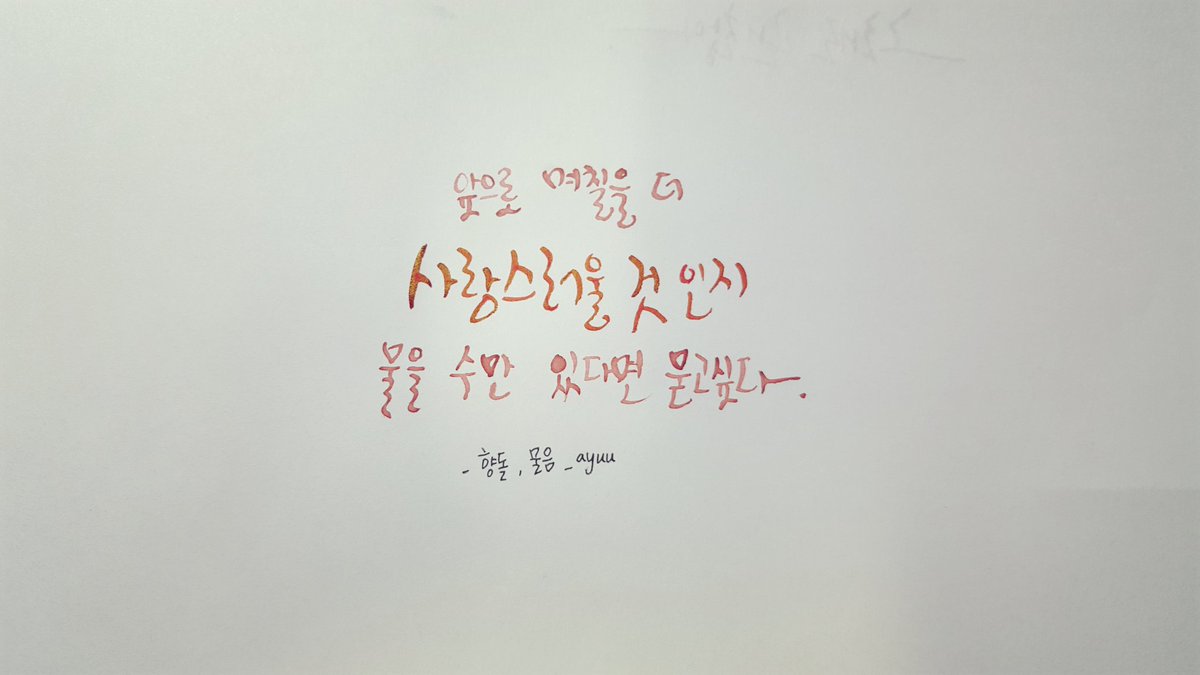 앞으로 며칠을 더
사랑스러울 것 인지
물을 수만 있다면 묻고싶다.
- 향돌, 물음_ayuu